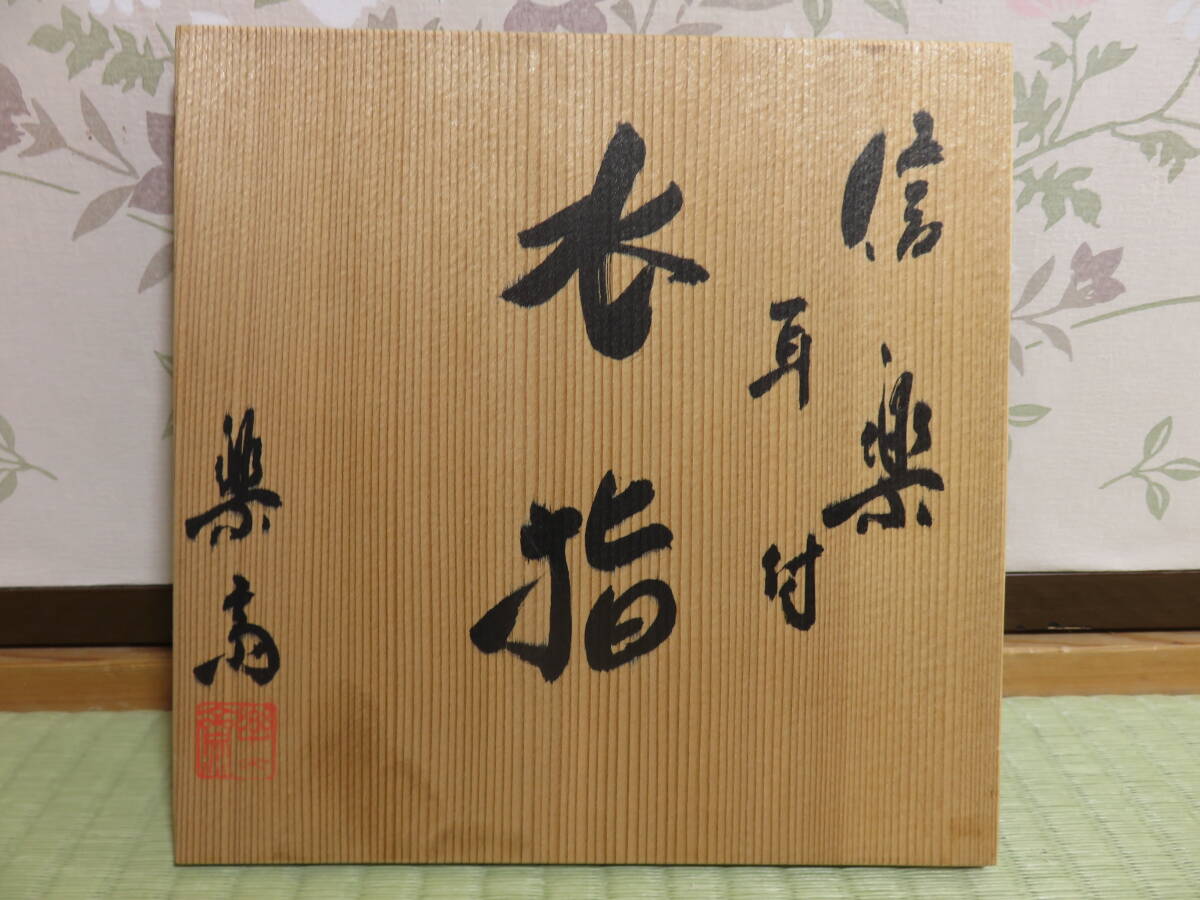 信楽
耳付
水指
楽斎